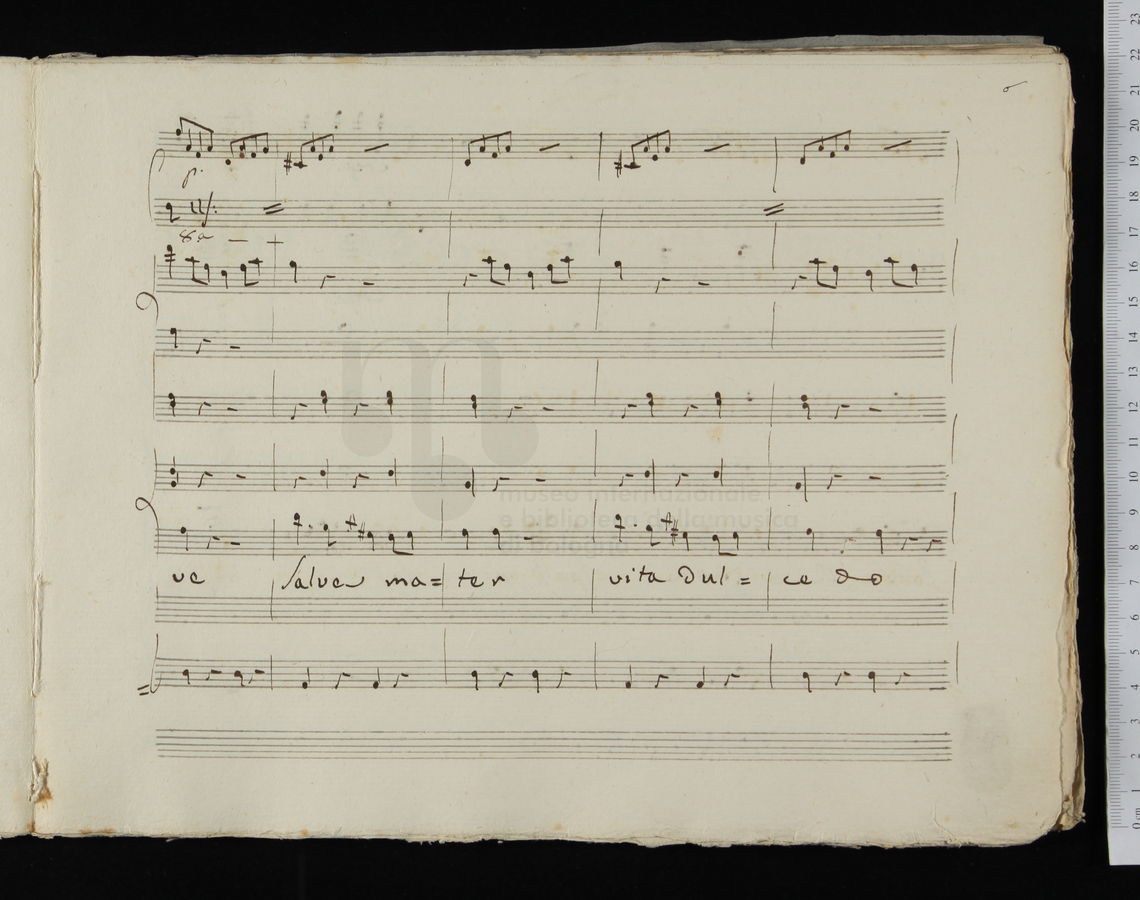 6
p.
8a
ve Salve ma= ter vita Dul= ce do
museo internazionale
e biblioteca della musica
di Bologna
23
22
21
20
19
18
17
16
15
14
13
12
11
10
9
8
7
6
5
4
3
2
1
0 cm